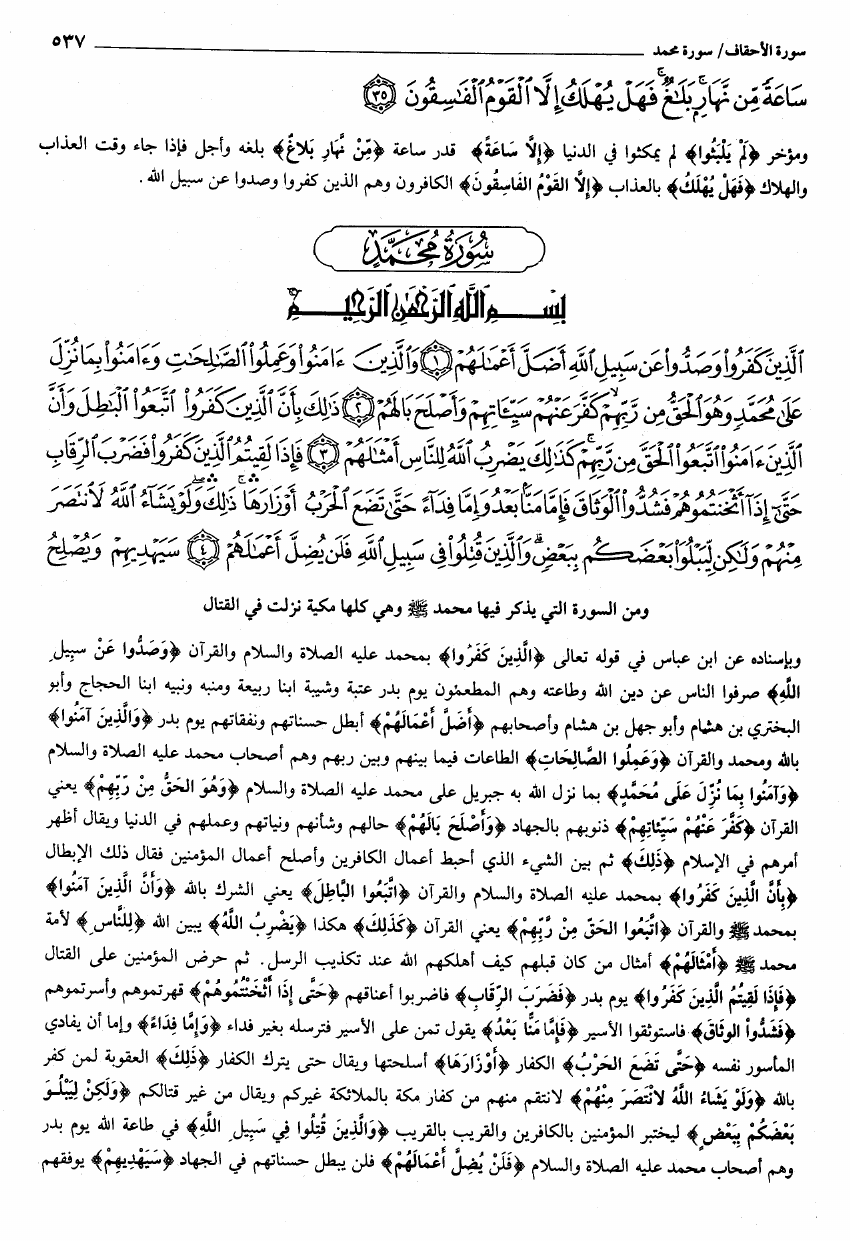 سورة الأحقاف/ سورة محمد ٥٣٧
سَاعَةً مِّن نَّهَارٍ بَلَاغٌ فَهَلْ يُهْلَكُ إِلَّا الْقَوْمُ الْفَاسِقُونَ ٣٥
ومؤخر ﴿لَمْ يَلْبَثُوا﴾ لم يمكثوا في الدنيا ﴿إِلَّا سَاعَةً﴾ قدر ساعة ﴿مِّنْ نَّهَارٍ بَلاغٌ﴾ بلغه وأجل فإذا جاء وقت العذاب
والهلاك ﴿فَهَلْ يُهْلَكُ﴾ بالعذاب ﴿إِلَّا القَوْمُ الفَاسِقُونَ﴾ الكافرون وهم الذين كفروا وصدوا عن سبيل الله.
سُورَةُ مُحَمَّدٍ
بِسْمِ اللَّهِ الرَّحْمَٰنِ الرَّحِيمِ
الَّذِينَ كَفَرُوا وَصَدُّوا عَن سَبِيلِ اللَّهِ أَضَلَّ أَعْمَالَهُمْ ١ وَالَّذِينَ ءَامَنُوا وَعَمِلُوا الصَّالِحَاتِ وَءَامَنُوا بِمَا نُزِّلَ
عَلَى مُحَمَّدٍ وَهُوَ الْحَقُّ مِن رَّبِّهِمْ كَفَّرَ عَنْهُمْ سَيِّئَاتِهِمْ وَأَصْلَحَ بَالَهُمْ ٢ ذَٰلِكَ بِأَنَّ الَّذِينَ كَفَرُوا اتَّبَعُوا الْبَاطِلَ وَأَنَّ
الَّذِينَ ءَامَنُوا اتَّبَعُوا الْحَقَّ مِن رَّبِّهِمْ كَذَٰلِكَ يَضْرِبُ اللَّهُ لِلنَّاسِ أَمْثَالَهُمْ ٣ فَإِذَا لَقِيتُمُ الَّذِينَ كَفَرُوا فَضَرْبَ الرِّقَابِ
حَتَّىٰ إِذَا أَثْخَنتُمُوهُمْ فَشُدُّوا الْوَثَاقَ فَإِمَّا مَنًّا بَعْدُ وَإِمَّا فِدَاءً حَتَّىٰ تَضَعَ الْحَرْبُ أَوْزَارَهَا ذَٰلِكَ وَلَوْ يَشَاءُ اللَّهُ لَانتَصَرَ
مِنْهُمْ وَلَٰكِن لِّيَبْلُوَا بَعْضَكُم بِبَعْضٍ وَالَّذِينَ قُتِلُوا فِي سَبِيلِ اللَّهِ فَلَن يُضِلَّ أَعْمَالَهُمْ ٤ سَيَهْدِيهِمْ وَيُصْلِحُ
ومن السورة التي يذكر فيها محمد ﷺ وهي كلها مكية نزلت في القتال
وبإسناده عن ابن عباس في قوله تعالى ﴿الَّذِينَ كَفَرُوا﴾ بمحمد عليه الصلاة والسلام والقرآن ﴿وَصَدُّوا عَنْ سَبِيلِ
اللَّهِ﴾ صرفوا الناس عن دين الله وطاعته وهم المطعمون يوم بدر عتبة وشيبة ابنا ربيعة ومنبه ونبيه ابنا الحجاج وأبو
البختري بن هشام وأبو جهل بن هشام وأصحابهم ﴿أَضَلَّ أَعْمَالَهُمْ﴾ أبطل حسناتهم ونفقاتهم يوم بدر ﴿وَالَّذِينَ آمَنُوا﴾
بالله ومحمد والقرآن ﴿وَعَمِلُوا الصَّالِحَاتِ﴾ الطاعات فيما بينهم وبين ربهم وهم أصحاب محمد عليه الصلاة والسلام
﴿وَآمَنُوا بِمَا نُزِّلَ عَلَى مُحَمَّدٍ﴾ بما نزل الله به جبريل على محمد عليه الصلاة والسلام ﴿وَهُوَ الحَقُّ مِنْ رَبِّهِمْ﴾ يعني
القرآن ﴿كَفَّرَ عَنْهُمْ سَيِّئاتِهِمْ﴾ ذنوبهم بالجهاد ﴿وَأَصْلَحَ بَالَهُمْ﴾ حالهم وشأنهم ونياتهم وعملهم في الدنيا ويقال أظهر
أمرهم في الإسلام ﴿ذَلِكَ﴾ ثم بين الشيء الذي أحبط أعمال الكافرين وأصلح أعمال المؤمنين فقال ذلك الإبطال
﴿بِأَنَّ الَّذِينَ كَفَرُوا﴾ بمحمد عليه الصلاة والسلام والقرآن ﴿اتَّبَعُوا البَّاطِلَ﴾ يعني الشرك بالله ﴿وَأَنَّ الَّذِينَ آمَنُوا﴾
بمحمد ﷺ والقرآن ﴿اتَّبَعُوا الحَقّ مِنْ رَّبِّهِمْ﴾ يعني القرآن ﴿كَذَلِكَ﴾ هكذا ﴿يَضْرِبُ اللَّهُ﴾ يبين الله ﴿لِلنَّاسِ﴾ لأمة
محمد ﷺ ﴿أَمْثَالَهُمْ﴾ أمثال من كان قبلهم كيف أهلكهم الله عند تكذيب الرسل. ثم حرض المؤمنين على القتال
﴿فَإِذَا لَقِيتُمُ الَّذِينَ كَفَرُوا﴾ يوم بدر ﴿فَضَرَبَ الرِّقَابِ﴾ فاضربوا أعناقهم ﴿حَتَّى إِذَا أَثْخَنْتُمُوهُمْ﴾ قهرتموهم وأسرتموهم
﴿فَشُدُّوا الوِثَاقَ﴾ فاستوثقوا الأسير ﴿فَإِمَّا مَنًّا بَعْدُ﴾ يقول تمن على الأسير فترسله بغير فداء ﴿وَإِمَّا فِدَاءً﴾ وإما أن يفادي
المأسور نفسه ﴿حَتَّى تَضَعَ الحَرْبُ﴾ الكفار ﴿أَوْزَارَهَا﴾ أسلحتها ويقال حتى يترك الكفار ﴿ذَلِكَ﴾ العقوبة لمن كفر
بالله ﴿وَلَوْ يَشَاءُ اللَّهُ لانْتَصَرَ مِنْهُمْ﴾ لانتقم منهم من كفار مكة بالملائكة غيركم ويقال من غير قتالكم ﴿وَلَكِنْ لِيَبْلُوَ
بَعْضَكُمْ بِبَعْضٍ﴾ ليختبر المؤمنين بالكافرين والقريب بالقريب ﴿وَالَّذِينَ قُتِلُوا فِي سَبِيلِ اللَّهِ﴾ في طاعة الله يوم بدر
وهم أصحاب محمد عليه الصلاة والسلام ﴿فَلَنْ يُضِلَّ أَعْمَالَهُمْ﴾ فلن يبطل حسناتهم في الجهاد ﴿سَيَهْدِيهِمْ﴾ يوفقهم